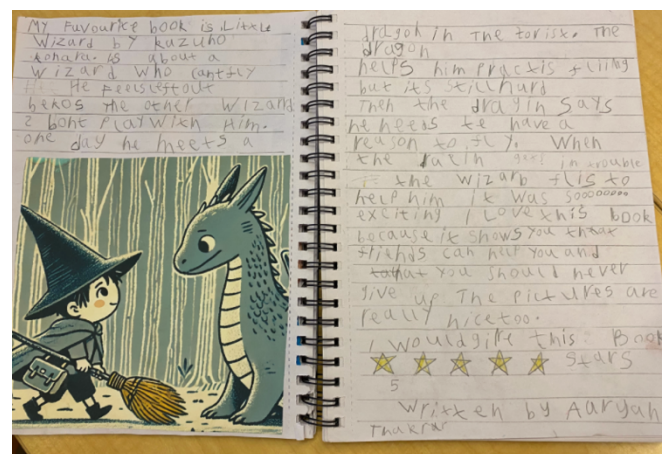 My Favourite book is Little
Wizard by kazuno
kohara. is about a
Wizard who cantfly
He feels left out
bekos The other Wizard
s bont Play With Him.
one day he meets a
dragon in The forist. The
dragon
helps him Practis fliing
but its still hurd
Then the dragin Says
he needs te have a
reason to fly. When
the gets in trouble
the wizarb flis to
help him it Was soooooooo
exciting I Love this book
because it shows you that
friends can help you and
that you should never
give up The Pictures are
really nice too.
I would give this Book
stars
5
Written by Aaryah
Thakrar